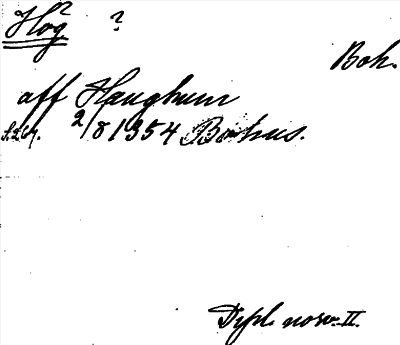 Hög ?
Boh.
aff Haughum
s. 267. 2/8 1354 Bohus.
Dipl. norv. II.